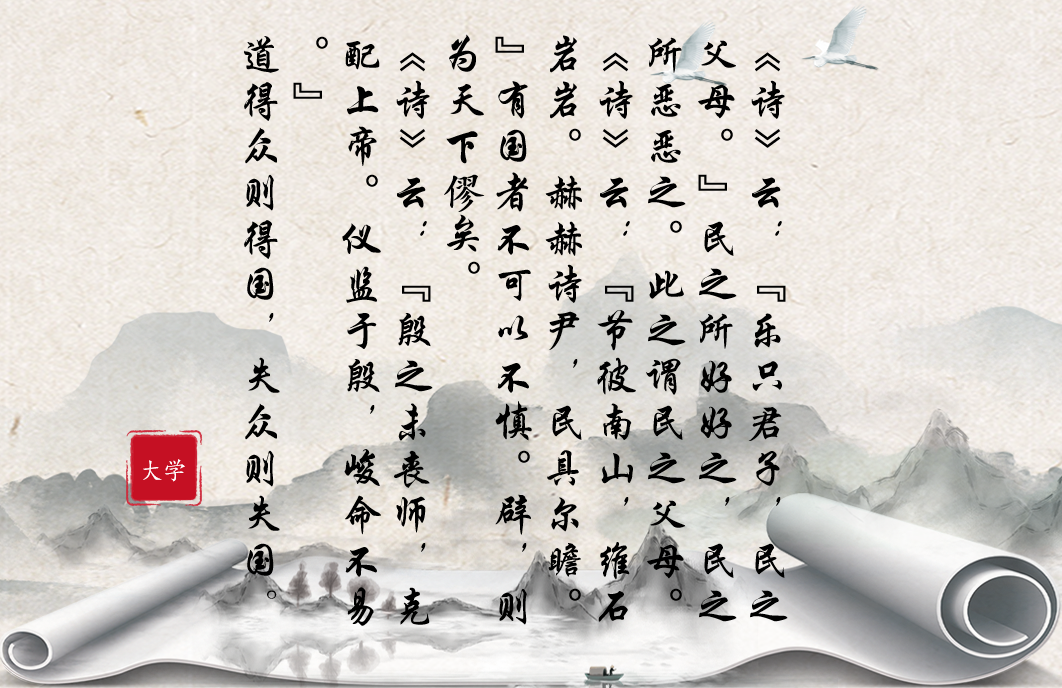 《诗》云：『乐只君子，民之
父母。』民之所好好之，民之
所恶恶之。此之谓民之父母。
《诗》云：『节彼南山，维石
岩岩。赫赫诗尹，民具尔瞻。
』有国者不可以不慎。辟，则
为天下僇矣。
《诗》云：『殷之未丧师，克
配上帝。仪监于殷，峻命不易
。』
道得众则得国，失众则失国。
大学